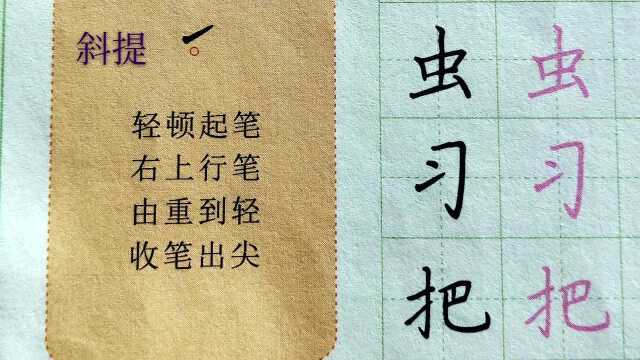 斜提
轻顿起笔
右上行笔
由重到轻
收笔出尖
虫 虫
习 习
把 把